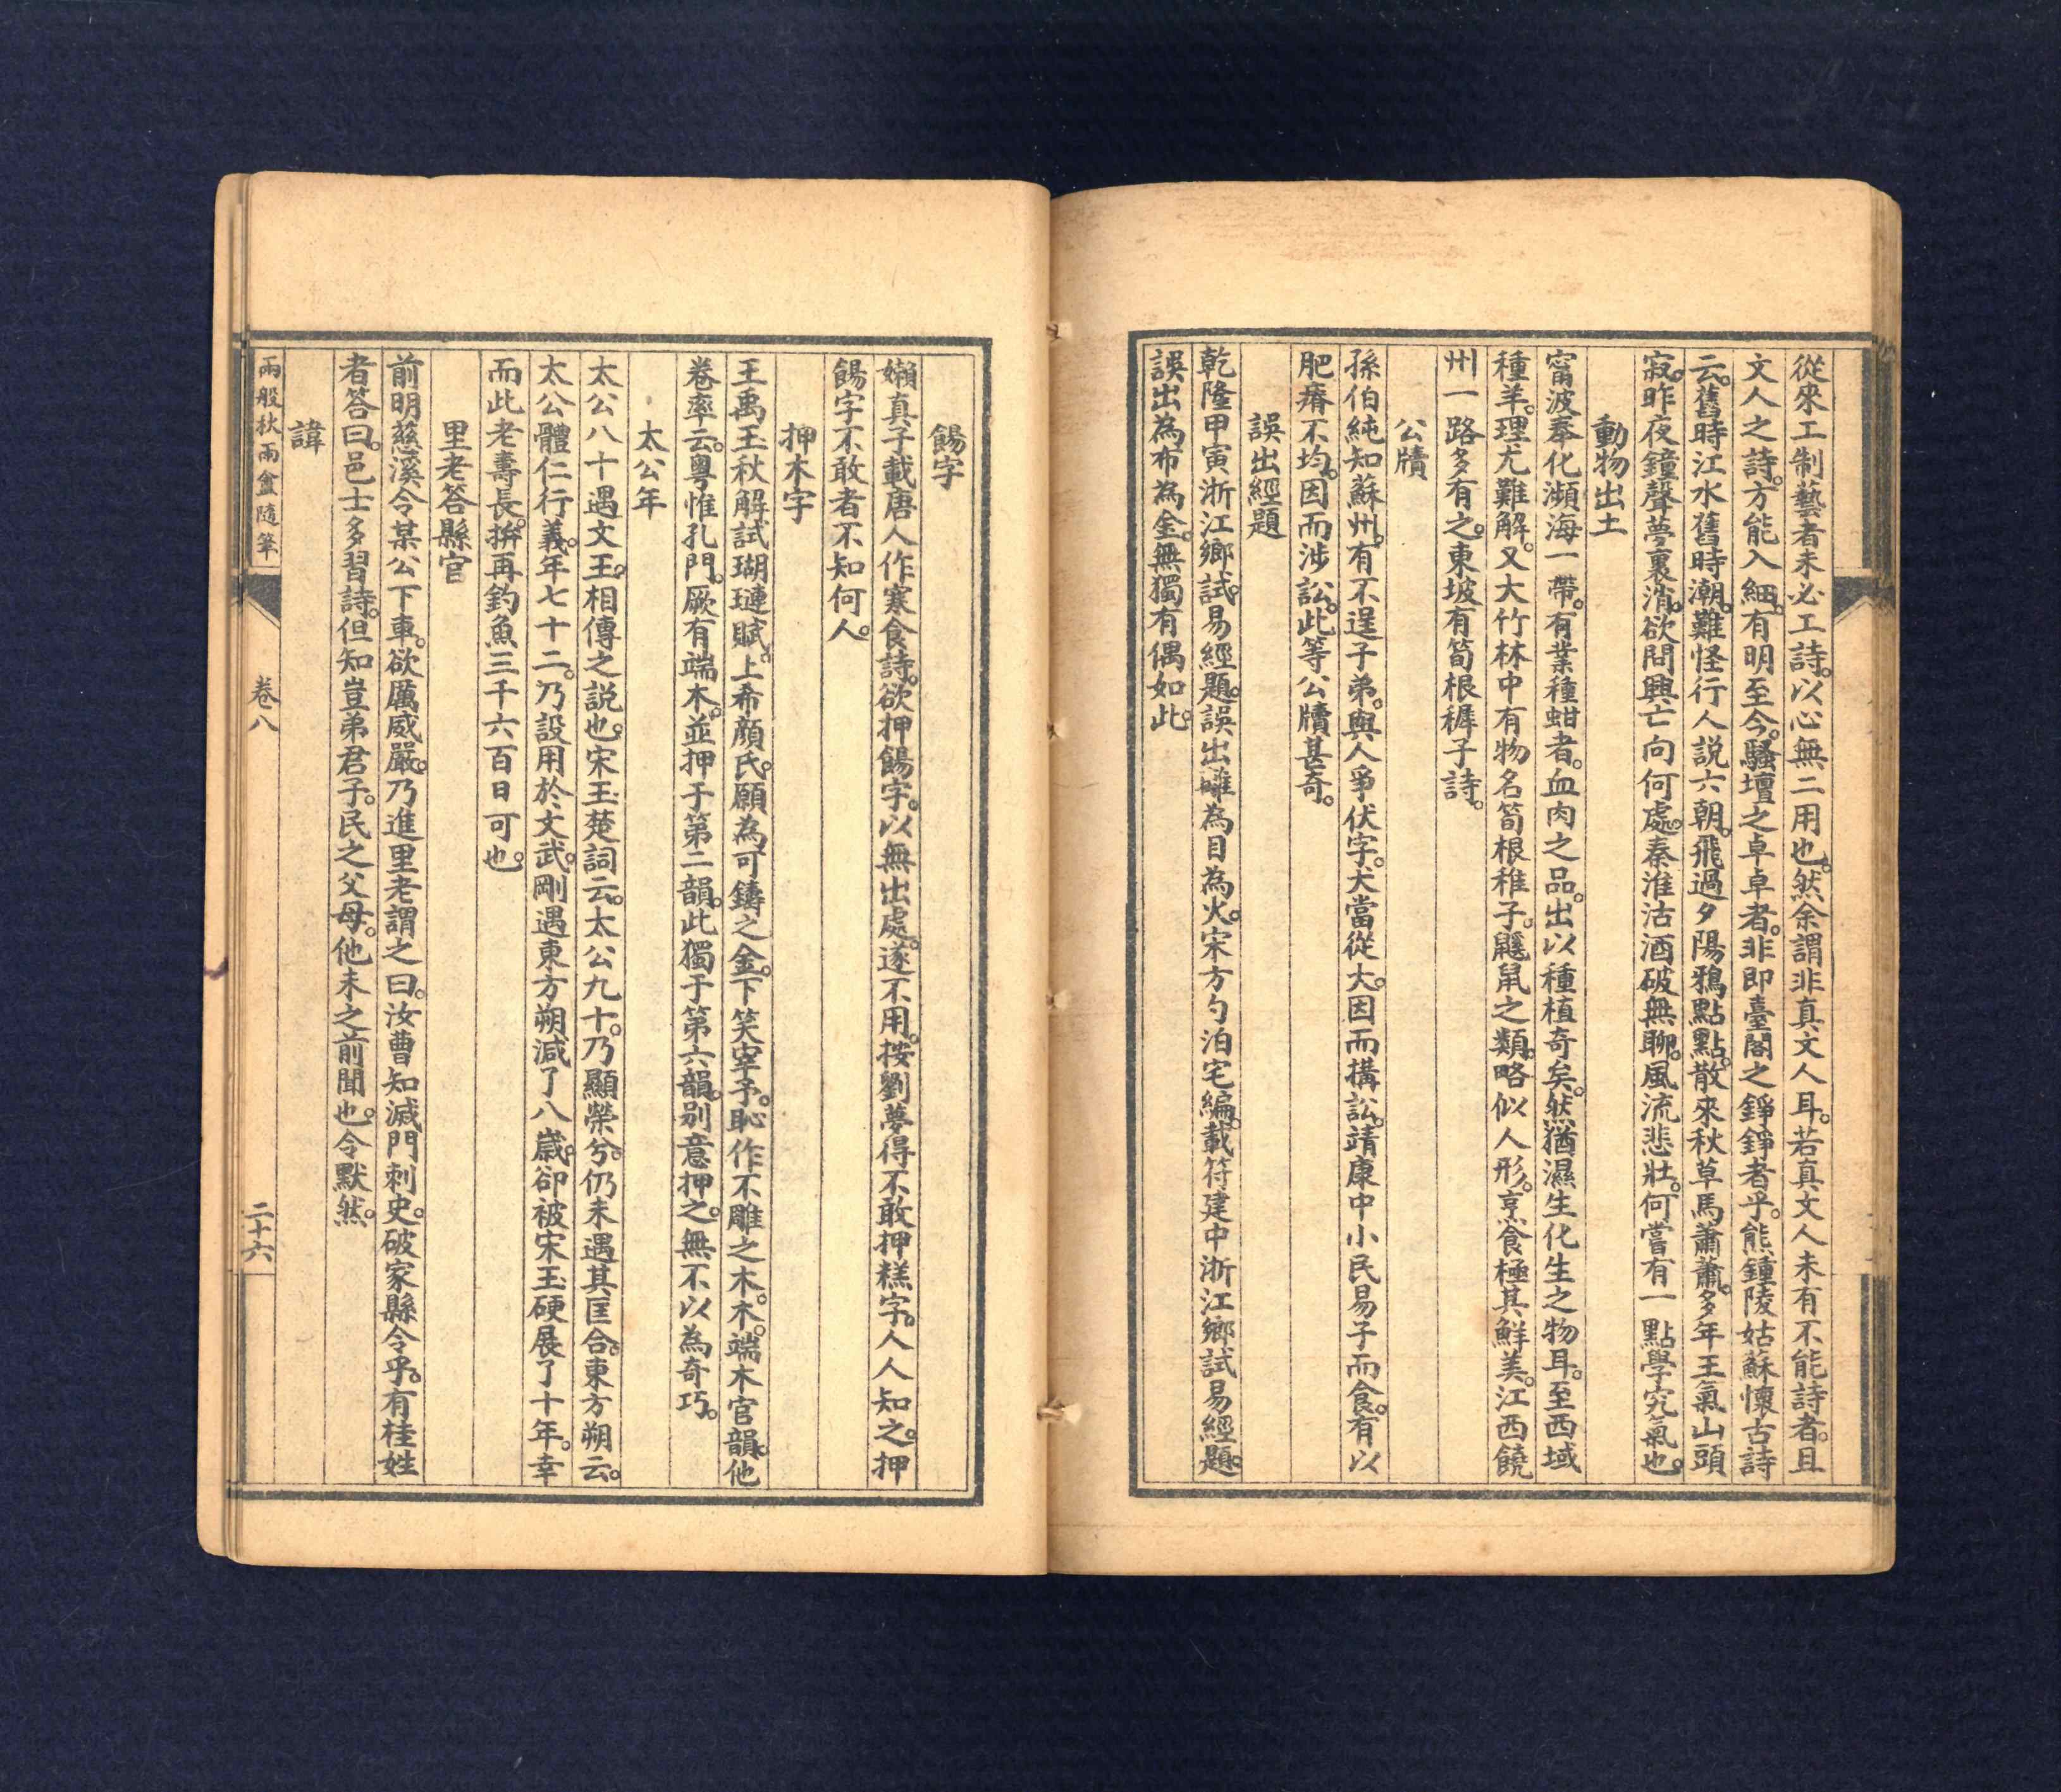 從來工制藝者未必工詩。以心無二用也。然余謂非真文人耳。若真文人未有不能詩者。且
文人之詩。方能入細。有明至今。騷壇之卓卓者。非即臺閣之錚錚者乎。熊鍾陵姑蘇懷古詩
云。舊時江水舊時潮。難怪行人説六朝。飛過夕陽鴉點點。散來秋草馬蕭蕭。多年王氣山頭
寂。昨夜鐘聲夢裏消。欲問興亡向何處。秦淮沽酒破無聊。風流悲壯。何嘗有一點學究氣也。
動物出土
甯波奉化瀕海一帶。有業種蚶者。血肉之品。出以種植奇矣。然猶濕生化生之物耳。至西域
種羊。理尤難解。又大竹林中有物名筍根稚子。鼴鼠之類。略似人形。烹食極其鮮美。江西饒
州一路多有之。東坡有筍根稺子詩。
公牘
孫伯純知蘇州。有不逞子弟。與人爭伏字。犬當從大。因而搆訟。靖康中小民易子而食。有以
肥瘠不均。因而涉訟。此等公牘甚奇。
誤出經題
乾隆甲寅浙江鄉試。易經題。誤出離為目為火。宋方勺泊宅編。載符建中浙江鄉試易經題。
誤出為布為金。無獨有偶如此。
餳字
嬾真子載唐人作寒食詩。欲押餳字。以無出處。遂不用。按劉夢得不敢押糕字。人人知之。押
餳字不敢者不知何人。
押木字
王禹玉秋解試瑚璉賦。上希顏氏。願為可鑄之金。下笑宰予。恥作不雕之木。木。端木官韻。他
卷率云。粵惟孔門。厥有端木。並押于第二韻。此獨于第六韻。别意押之。無不以為奇巧。
太公年
太公八十遇文王。相傳之説也。宋玉楚詞云。太公九十。乃顯榮兮。仍未遇其匡合。東方朔云。
太公體仁行義。年七十二。乃設用於文武。剛遇東方朔減了八歲。卻被宋玉硬展了十年。幸
而此老壽長。拚再釣魚三千六百日可也。
里老答縣官
前明慈溪令某公下車。欲厲威嚴。乃進里老謂之曰。汝曹知滅門刺史。破家縣令乎。有桂姓
者答曰。邑士多習詩。但知豈弟君子。民之父母。他未之前聞也。令默然。
諱
兩般秋雨盦隨筆
卷八
二十六